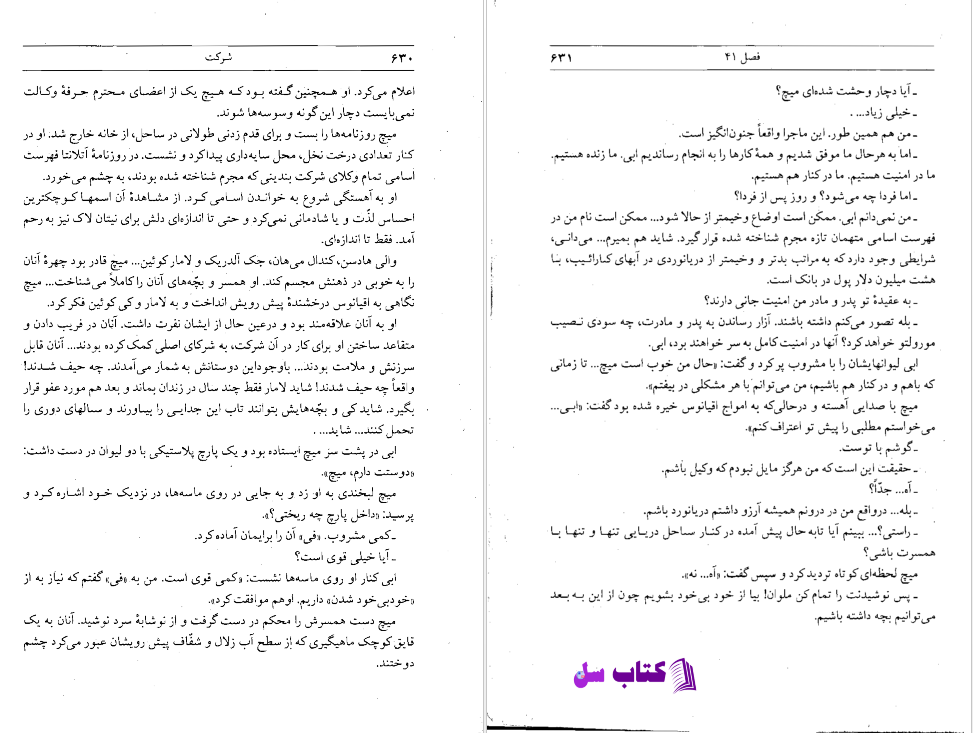 ۶۳۰
شرکت
اعلام می‌کرد. او همچنین گفته بود که هیچ یک از اعضای محترم حرفهٔ وکالت
نمی‌بایست دچار این گونه وسوسه‌ها شوند.
میچ روزنامه‌ها را بست و برای قدم زدنی طولانی در ساحل، از خانه خارج شد. او در
کنار تعدادی درخت نخل، محل سایه‌داری پیدا کرد و نشست. در روزنامهٔ آتلانتا فهرست
اسامی تمام وکلای شرکت بندینی که مجرم شناخته شده بودند، به چشم می‌خورد.
او به آهستگی شروع به خواندن اسامی کرد. از مشاهدهٔ آن اسمها کوچکترین
احساس لذّت و یا شادمانی نمی‌کرد و حتی تا اندازه‌ای دلش برای نیتان لاک نیز به رحم
آمد. فقط تا اندازه‌ای.
والی هادسن، کندال می‌هان، جک آلدریک و لامار کوئین... میچ قادر بود چهرهٔ آنان
را به خوبی در ذهنش مجسم کند. او همسر و بچّه‌های آنان را کاملاً می‌شناخت... میچ
نگاهی به اقیانوس درخشندهٔ پیش رویش انداخت و به لامار و کی کوئین فکر کرد.
او به آنان علاقه‌مند بود و درعین حال از ایشان نفرت داشت. آنان در فریب دادن و
متقاعد ساختن او برای کار در آن شرکت، به شرکای اصلی کمک کرده بودند... آنان قابل
سرزنش و ملامت بودند... باوجوداین دوستانش به شمار می‌آمدند. چه حیف شدند!
واقعاً چه حیف شدند! شاید لامار فقط چند سال در زندان بماند و بعد هم مورد عفو قرار
بگیرد. شاید کی و بچّه‌هایش بتوانند تاب این جدایی را بیاورند و سالهای دوری را
تحمل کنند... شاید... .
ابی در پشت سر میچ ایستاده بود و یک پارچ پلاستیکی با دو لیوان در دست داشت:
«دوستت دارم، میچ».
میچ لبخندی به او زد و به جایی در روی ماسه‌ها، در نزدیک خود اشاره کرد و
پرسید: «داخل پارچ چه ریختی؟».
ـ کمی مشروب. «فی» آن را برایمان آماده کرد.
ـ آیا خیلی قوی است؟
ابی کنار او روی ماسه‌ها نشست: «کمی قوی است. من به «فی» گفتم که نیاز به از
«خودبی‌خود شدن» داریم. اوهم موافقت کرد».
میچ دست همسرش را محکم در دست گرفت و از نوشابهٔ سرد نوشید. آنان به یک
قایق کوچک ماهیگیری که از سطح آب زلال و شفّاف پیش رویشان عبور می‌کرد چشم
دوختند.
فصل ۴۱
۶۳۱
ـ آیا دچار وحشت شده‌ای میچ؟
ـ خیلی زیاد... .
ـ من هم همین طور. این ماجرا واقعاً جنون‌انگیز است.
ـ اما به هرحال ما موفق شدیم و همهٔ کارها را به انجام رساندیم ابی. ما زنده هستیم.
ما در امنیت هستیم. ما در کنار هم هستیم.
ـ اما فردا چه می‌شود؟ و روز پس از فردا؟
ـ من نمی‌دانم ابی. ممکن است اوضاع وخیمتر از حالا شود... ممکن است نام من در
فهرست اسامی متهمان تازه مجرم شناخته شده قرار گیرد. شاید هم بمیرم... می‌دانی،
شرایطی وجود دارد که به مراتب بدتر و وخیمتر از دریانوردی در آبهای کارائیب، با
هشت میلیون دلار پول در بانک است.
ـ به عقیدهٔ تو پدر و مادر من امنیت جانی دارند؟
ـ بله تصور می‌کنم داشته باشند. آزار رساندن به پدر و مادرت، چه سودی نصیب
مورولتو خواهد کرد؟ آنها در امنیت کامل به سر خواهند برد، ابی.
ابی لیوانهایشان را با مشروب پر کرد و گفت: «حال من خوب است میچ... تا زمانی
که باهم و درکنار هم باشیم، من می‌توانم با هر مشکلی در بیفتم».
میچ با صدایی آهسته و درحالی‌که به امواج اقیانوس خیره شده بود گفت: «ابی...
می‌خواستم مطلبی را پیش تو اعتراف کنم».
ـ گوشم با توست.
ـ حقیقت این است که من هرگز مایل نبودم که وکیل باشم.
ـ آه... جدّاً؟
ـ بله... درواقع من در درونم همیشه آرزو داشتم دریانورد باشم.
ـ راستی؟... ببینم آیا تابه حال پیش آمده در کنار ساحل دریایی تنها و تنها با
همسرت باشی؟
میچ لحظه‌ای کوتاه تردید کرد و سپس گفت: «آه... نه».
ـ پس نوشیدنت را تمام کن ملوان! بیا از خود بی‌خود بشویم چون از این به بعد
می‌توانیم بچه داشته باشیم.
کتاب سل